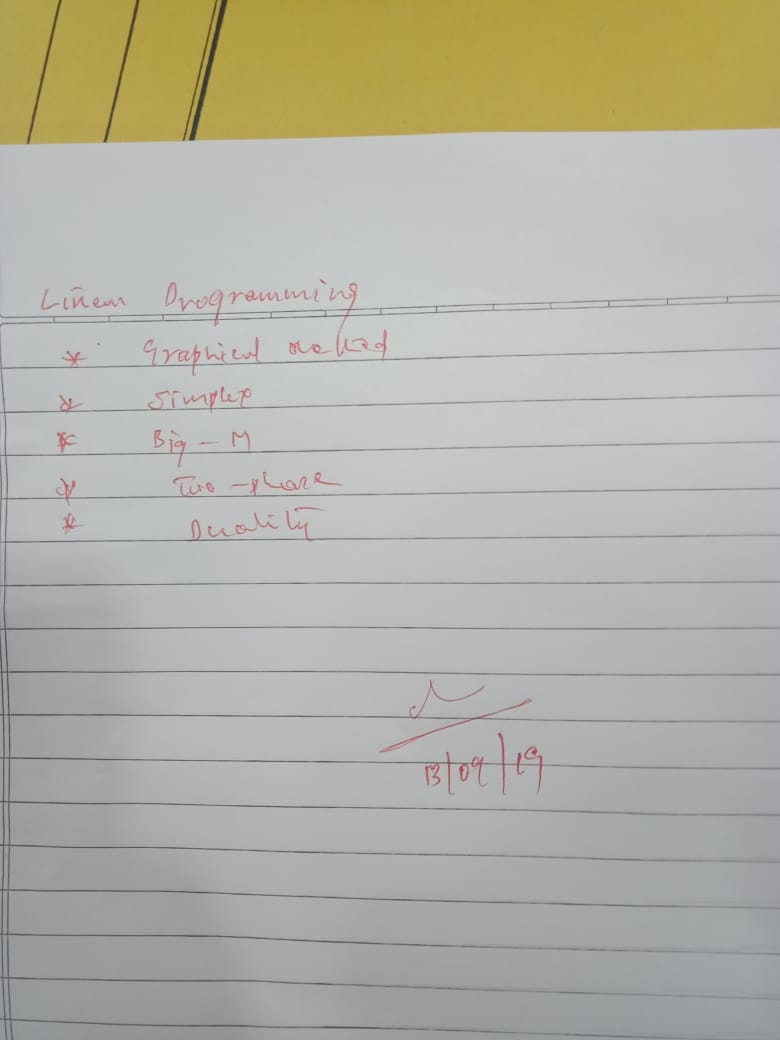 Linear Programming
* Graphical method
* Simplex
* Big - M
* Two - phase
* Duality
13/09/19